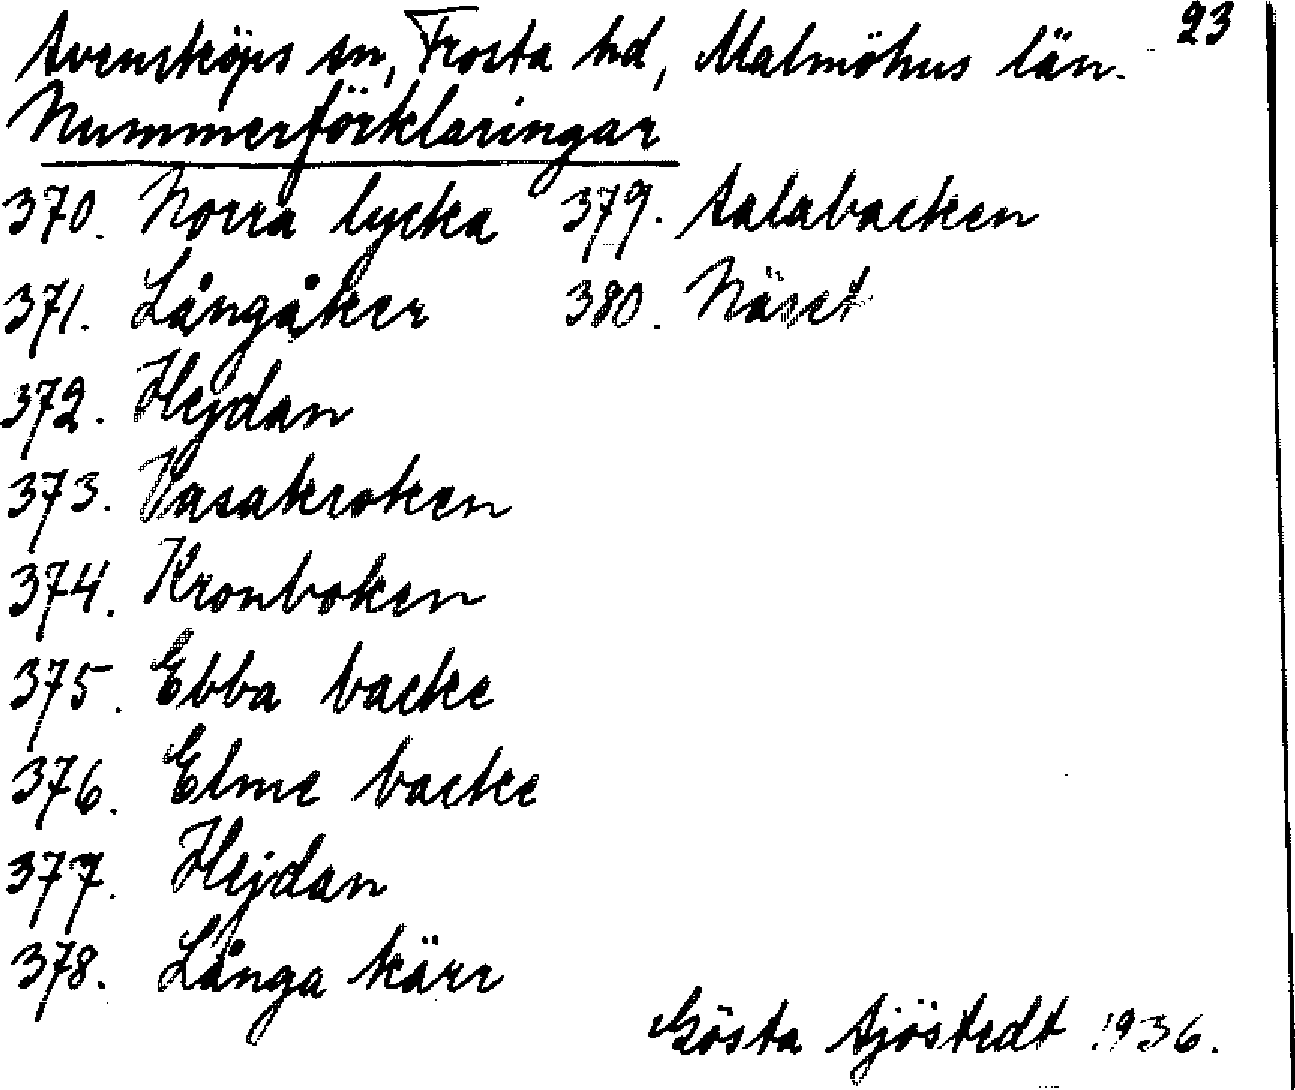 23
Svensköps sn, Frosta hd, Malmöhus län.
Nummerförklaringar
370. Norra lycka
371. Långåker
372. Hejdan
373. Vasakroken
374. Kronboken
375. Ebba backe
376. Elme backe
377. Hejdan
378. Långa kärr
379. Salabacken
380. Näset
Gösta Sjöstedt 1936.